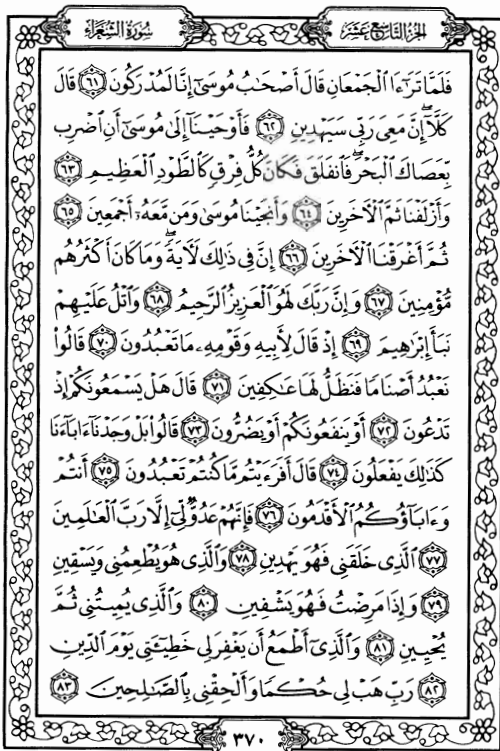 الجزء التاسع عشر
سورة الشعراء
فَلَمَّا تَرَٰٓءَا ٱلْجَمْعَانِ قَالَ أَصْحَـٰبُ مُوسَىٰٓ إِنَّا لَمُدْرَكُونَ ٦١ قَالَ
كَلَّآ ۖ إِنَّ مَعِىَ رَبِّى سَيَهْدِينِ ٦٢ فَأَوْحَيْنَآ إِلَىٰ مُوسَىٰٓ أَنِ ٱضْرِب
بِّعَصَاكَ ٱلْبَحْرَ ۖ فَٱنفَلَقَ فَكَانَ كُلُّ فِرْقٍ كَٱلطَّوْدِ ٱلْعَظِيمِ ٦٣
وَأَزْلَفْنَا ثَمَّ ٱلْـَٔاخَرِينَ ٦٤ وَأَنجَيْنَا مُوسَىٰ وَمَن مَّعَهُۥٓ أَجْمَعِينَ ٦٥
ثُمَّ أَغْرَقْنَا ٱلْـَٔاخَرِينَ ٦٦ إِنَّ فِى ذَٰلِكَ لَـَٔايَةً ۖ وَمَا كَانَ أَكْثَرُهُم
مُّؤْمِنِينَ ٦٧ وَإِنَّ رَبَّكَ لَهُوَ ٱلْعَزِيزُ ٱلرَّحِيمُ ٦٨ وَٱتْلُ عَلَيْهِمْ
نَبَأَ إِبْرَٰهِيمَ ٦٩ إِذْ قَالَ لِأَبِيهِ وَقَوْمِهِۦ مَا تَعْبُدُونَ ٧٠ قَالُوا۟
نَعْبُدُ أَصْنَامًا فَنَظَلُّ لَهَا عَـٰكِفِينَ ٧١ قَالَ هَلْ يَسْمَعُونَكُمْ إِذْ
تَدْعُونَ ٧٢ أَوْ يَنفَعُونَكُمْ أَوْ يَضُرُّونَ ٧٣ قَالُوا۟ بَلْ وَجَدْنَآ ءَابَآءَنَا
كَذَٰلِكَ يَفْعَلُونَ ٧٤ قَالَ أَفَرَءَيْتُم مَّا كُنتُمْ تَعْبُدُونَ ٧٥ أَنتُمْ
وَءَابَآؤُكُمُ ٱلْأَقْدَمُونَ ٧٦ فَإِنَّهُمْ عَدُوٌّ لِّىٓ إِلَّا رَبَّ ٱلْعَـٰلَمِينَ
٧٧ ٱلَّذِى خَلَقَنِى فَهُوَ يَهْدِينِ ٧٨ وَٱلَّذِى هُوَ يُطْعِمُنِى وَيَسْقِينِ
٧٩ وَإِذَا مَرِضْتُ فَهُوَ يَشْفِينِ ٨٠ وَٱلَّذِى يُمِيتُنِى ثُمَّ
يُحْيِينِ ٨١ وَٱلَّذِىٓ أَطْمَعُ أَن يَغْفِرَ لِى خَطِيٓـَٔتِى يَوْمَ ٱلدِّينِ
٨٢ رَبِّ هَبْ لِى حُكْمًا وَأَلْحِقْنِى بِٱلصَّـٰلِحِينَ ٨٣
٣٧٠